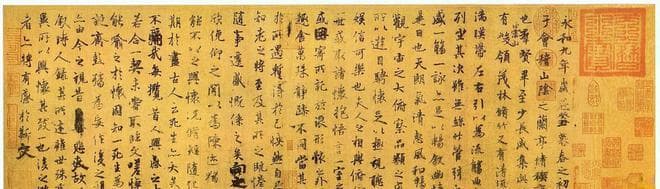 永和九年歲在癸丑暮春之初
于會稽山陰之蘭亭脩禊
也羣賢畢至少長咸集此
有峻領茂林脩竹又有清流
湍暎帶左右引以為流觴曲
列坐其次雖無絲竹管弦
盛一觴一詠亦足以暢敘幽
是日也天朗氣清惠風和暢
觀宇宙之大俯察品類之
所以遊目騁懷足以極視聽
娛信可樂也夫人之相與俯
一世或取諸懷抱悟言一室
或因寄所託放浪形骸之外
趣舍萬殊靜躁不同當
於所遇蹔得於己怏然自
知老之將至及其所之既惓
隨事遷感慨係之矣向之
欣俛仰之閒以為陳迹
能不以之興懷況脩短隨
期於盡古人云死生亦大矣
不痛哉每攬昔人興感之
若合一契未嘗不臨文嗟悼
能喻之於懷固知一死生為
齊彭殤為妄作後之
亦由今之視昔悲夫故
敘時人錄其所述雖世殊
異所以興懷其致一也後之
者亦將有感於斯文